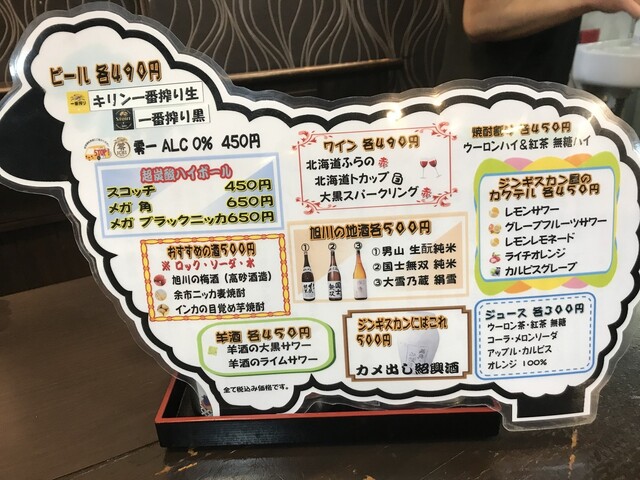 ビール 各490円
キリン一番搾り生
一番搾り黒
零一 ALC 0% 450円
超炭酸ハイボール
スコッチ 450円
メガ 角 650円
メガ ブラックニッカ 650円
おすすめの酒500円
※ ロック・ソーダ・水
旭川の梅酒（高砂酒造）
余市ニッカ麦焼酎
インカの目覚め芋焼酎
羊酒 各450円
羊酒の大黒サワー
羊酒のライムサワー
全て税込み価格です。
ワイン 各490円
北海道ふらの 赤
北海道トカップ 白
大黒スパークリング 赤
旭川の地酒各500円
① ② ③
①男山 生酛純米
②国士無双 純米
③大雪乃蔵 絹雪
ジンギスカンにはこれ
500円
カメ出し紹興酒
焼酎 各450円
ウーロンハイ＆紅茶 無糖ハイ
ジンギスカン屋の
カクテル 各450円
レモンサワー
グレープフルーツサワー
レモンレモネード
ライチオレンジ
カルピスグレープ
ジュース 各300円
ウーロン茶・紅茶 無糖
コーラ・メロンソーダ
アップル・カルピス
オレンジ 100%